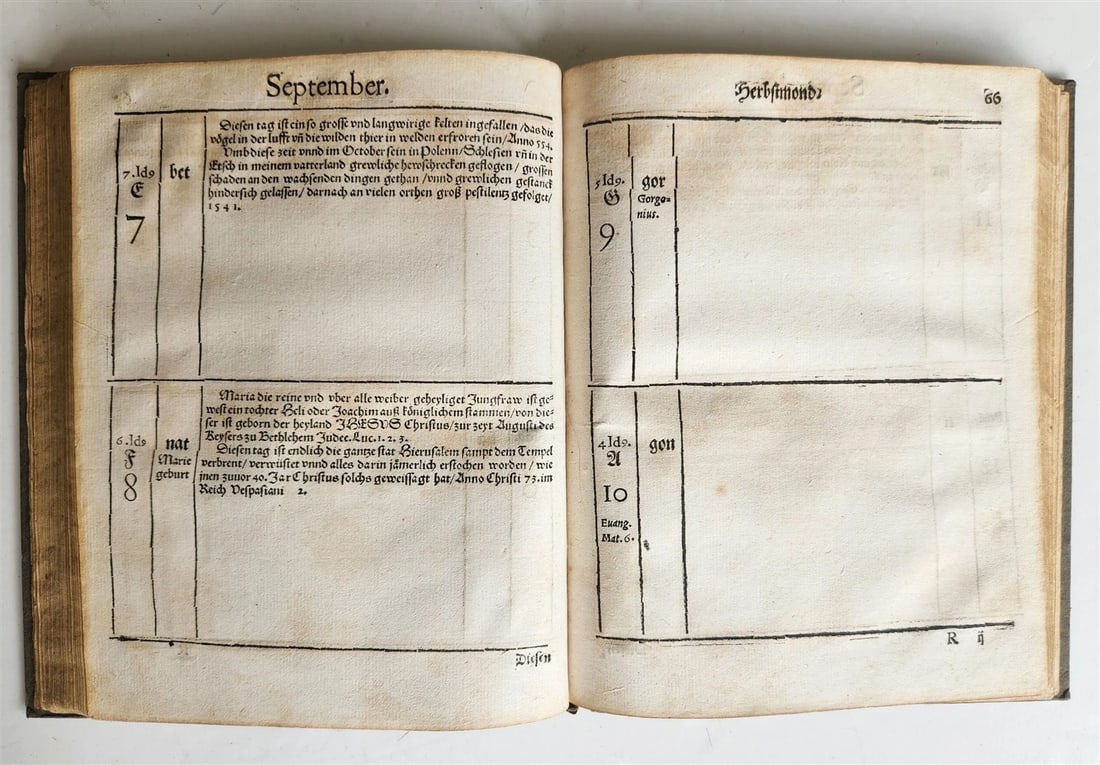 September.
7. Id9
E
7
bet
Diesen tag ist ein so grosse vnd langwirige kelten ingefallen / das die
vögel in der lufft vñ die wilden thier in welden erfroren sein / Anno 554.
Vmb diese zeit vnnd im October sein in Polenn / Schlesien vñ in der
Etsch in meinem vatterland grewliche hewschrecken geflogen / grossen
schaden an den wachsenden dingen gethan / vnnd grewlichen gestanck
hindersich gelassen / darnach an vielen orthen groß pestilentz gefolget /
1541.
6. Id9
F
8
nat
Marie
geburt
Maria die reine vnd vber alle weiber geheyliget Jungfraw ist ge=
west ein tochter Heli oder Joachim auß königlichem stammen / von die=
ser ist geborn der heyland JHESVS Christus / zur zeyt Augusti des
Keysers zu Bethlehem Judee. Luc. 1. 2. 3.
Diesen tag ist endlich die gantze stat Hierusalem sampt dem Tempel
verbrent / verwüstet vnnd alles darin jämerlich erstochen worden / wie
jnen zuuor 40. Jar Christus solchs geweissagt hat / Anno Christi 73. im
Reich Vespasiani 2.
Diesen
Herbstmond.
66
5 Id9.
G
9
gor
Gorgo=
nius.
4 Id9.
A
10
Euang.
Mat. 6.
gon
R ij